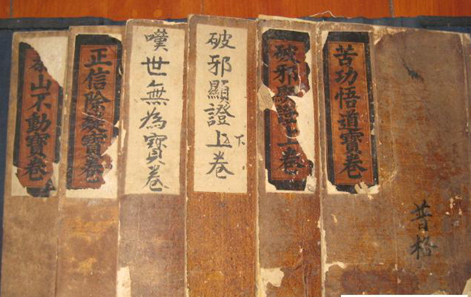 普
苦功悟道寶卷
破邪上卷
破邪顯證上卷
下
嘆世無為寶卷
正信除疑寶卷
山不動寶卷